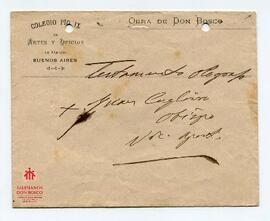 COLEGIO PIO IX
DE
ARTES Y OFICIOS
BUENOS AIRES
OBRA DE DON BOSCO
Testamento Ológrafo
+ Juan Cagliero
Obispo
Vic. Apost.
SALESIANOS
DON BOSCO